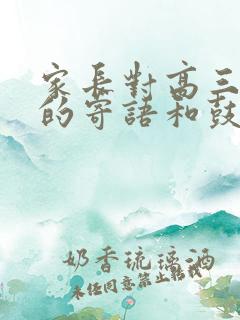 家長對高三
的寄語和鼓
奶香琉璃酒
未经同意禁止转载